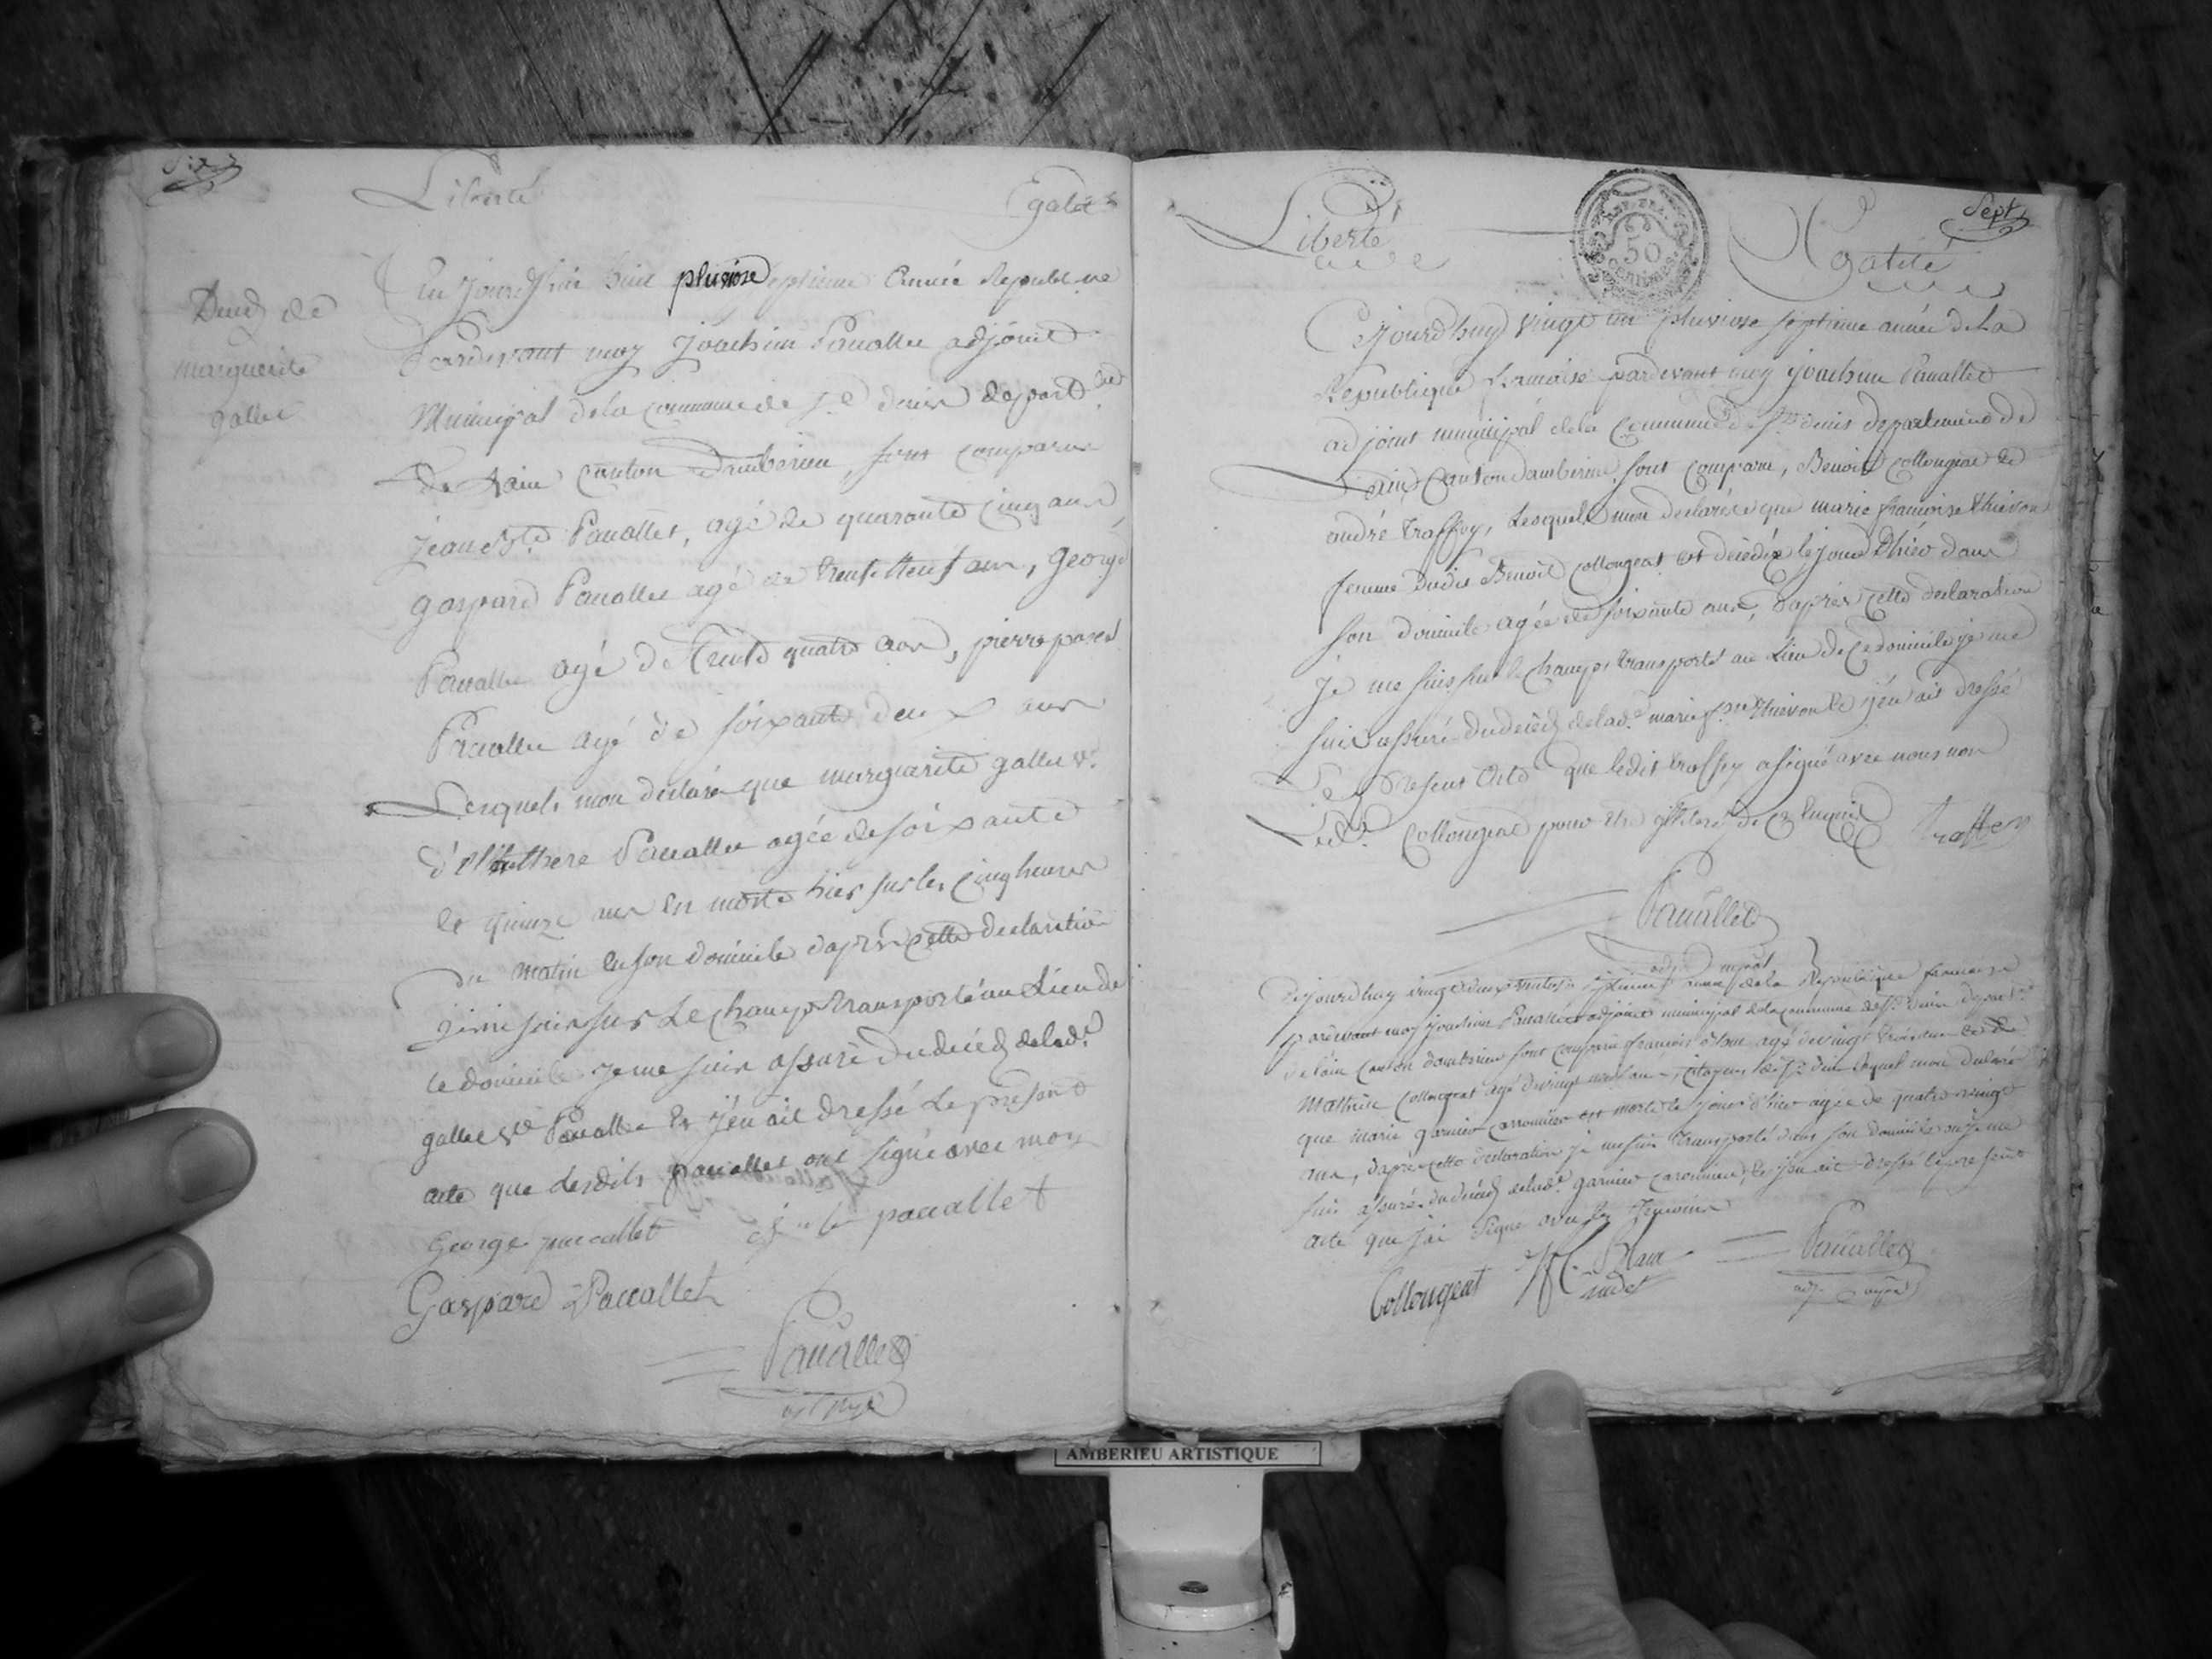 Six
Liberté Egalité
Deces de
marguerite
gallet
Ce Jourdhui huit pluviose septieme année Republi ne
Pardevant moy Joachim Pauallet adjoint
Municipal dela commune de St denis depart du
De Lain canton dambérieu, sont comparus
jean Bte Pauallet, agé de quarante cinq ans
gaspard Pauallet agé de trente neuf ans, george
Pauallet agé de Trente quatre ans, pierre
Pauallet agé de soixante deux ans
Lesquels mon déclaré que marguerite gallet ve
Pauallet agée de soixante
et quinze ans en morte hier sur les cinq heures
du matin en son domicile daprès cette declaration
je me suis sur Le champ transporté au Lieu de
ce domicile je me suis assuré du décès de lade
gallet ve Pauallet et j'en ait dressé le présent
acte que lesdits pauallet ont signé avec moy
George paccallet j b paccallet
Gaspard Paccallet
Pauallet
Sept
Liberté 50 Egalité
Cejourdhuy vingt un pluviose septieme année dela
Republique francaise pardevant moy joachim Pauallet
adjoint municipal dela commune de St denis departement de
Lain Canton dambérieu sont comparu, Benoit collongeat et
andré traffey, Lesquels mon declarés que marie francoise thievon
femme dudit Benoit collongeat est décédée le jour d'hier dans
son domicile agée de soixante ans, d'après cette declaration
Je me suis sur le champ transporté au Lieu de ce domicile je me
suis assuré du décès de lade marie fse thievon et j'en ait dressé
Le present acte que ledit traffey a signé avec nous non
Ledt Collongeat pour être illiteré de ce enquis traffey
Pauallet
adjt mpal
Cejourdhuy vingt deux septieme année dela Republique francaise
pardevant moy joachim Pauallet adjoint municipal dela commune de St denis depart
de lain canton dambérieu sont comparu françois agé de vingt trois ans et de
Mathieu Collongeat agé de vingt neuf ans, citoyens de St denis lesquel mon declaré
que marie garnier est morte le jour d'hier agée de quatre vingt
ans, daprès cette declaration je me suis transporté dans son domicile ou je me
suis assuré du décès de lade garnier et j'en ait dressé le present
acte que j'ai signé avec les temoins
Collongeat Pauallet
AMBERIEU ARTISTIQUE